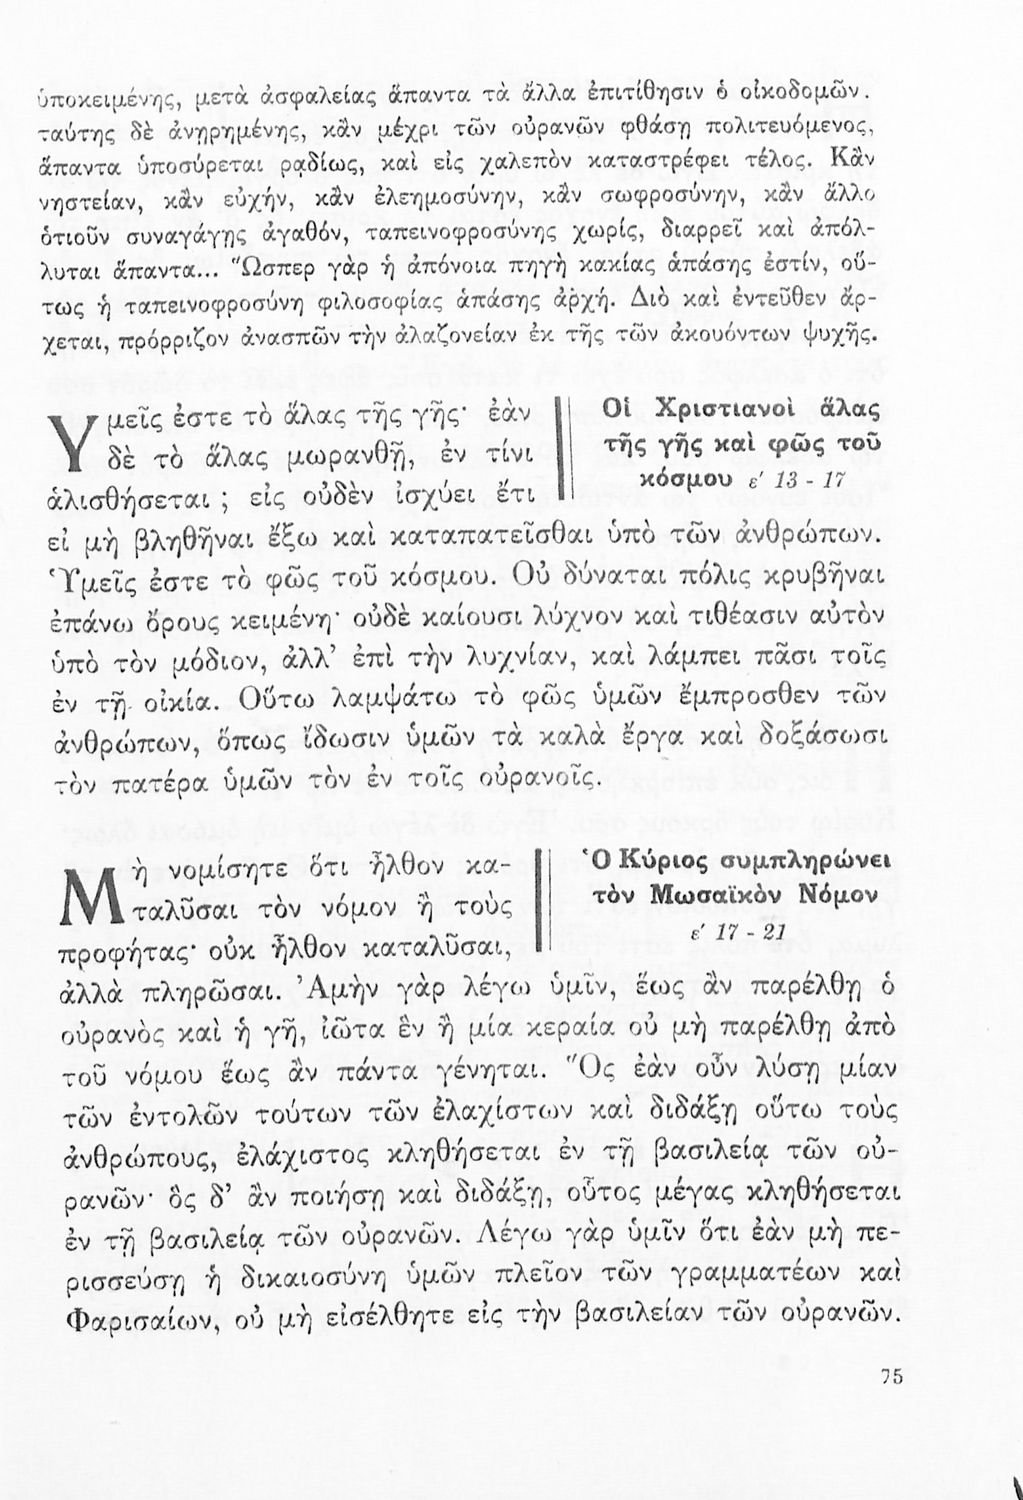 ὑποκειμένης, μετὰ ἀσφαλείας ἅπαντα τὰ ἄλλα ἐπιτίθησιν ὁ οἰκοδομῶν.
ταύτης δὲ ἀνῃρημένης, κἂν μέχρι τῶν οὐρανῶν φθάσῃ πολιτευόμενος,
ἅπαντα ὑποσύρεται ρᾳδίως, καὶ εἰς χαλεπὸν καταστρέφει τέλος. Κἂν
νηστείαν, κἂν εὐχήν, κἂν ἐλεημοσύνην, κἂν σωφροσύνην, κἂν ἄλλο
ὁτιοῦν συναγάγῃς ἀγαθόν, ταπεινοφροσύνης χωρίς, διαρρεῖ καὶ ἀπόλ-
λυται ἅπαντα... Ὥσπερ γὰρ ἡ ἀπόνοια πηγὴ κακίας ἁπάσης ἐστίν, οὕ-
τως ἡ ταπεινοφροσύνη φιλοσοφίας ἁπάσης ἀρχή. Διὸ καὶ ἐντεῦθεν ἄρ-
χεται, πρόρριζον ἀνασπῶν τὴν ἀλαζονείαν ἐκ τῆς τῶν ἀκουόντων ψυχῆς.
Οἱ Χριστιανοὶ ἅλας
τῆς γῆς καὶ φῶς τοῦ
κόσμου ε' 13 - 17
Υμεῖς ἐστε τὸ ἅλας τῆς γῆς· ἐὰν
δὲ τὸ ἅλας μωρανθῇ, ἐν τίνι
ἁλισθήσεται ; εἰς οὐδὲν ἰσχύει ἔτι
εἰ μὴ βληθῆναι ἔξω καὶ καταπατεῖσθαι ὑπὸ τῶν ἀνθρώπων.
Ὑμεῖς ἐστε τὸ φῶς τοῦ κόσμου. Οὐ δύναται πόλις κρυβῆναι
ἐπάνω ὄρους κειμένη· οὐδὲ καίουσι λύχνον καὶ τιθέασιν αὐτὸν
ὑπὸ τὸν μόδιον, ἀλλ' ἐπὶ τὴν λυχνίαν, καὶ λάμπει πᾶσι τοῖς
ἐν τῇ οἰκία. Οὕτω λαμψάτω τὸ φῶς ὑμῶν ἔμπροσθεν τῶν
ἀνθρώπων, ὅπως ἴδωσιν ὑμῶν τὰ καλὰ ἔργα καὶ δοξάσωσι
τὸν πατέρα ὑμῶν τὸν ἐν τοῖς οὐρανοῖς.
Ὁ Κύριος συμπληρώνει
τὸν Μωσαϊκὸν Νόμον
ε' 17 - 21
Μὴ νομίσητε ὅτι ἦλθον κα-
ταλῦσαι τὸν νόμον ἢ τοὺς
προφήτας· οὐκ ἦλθον καταλῦσαι,
ἀλλὰ πληρῶσαι. Ἀμὴν γὰρ λέγω ὑμῖν, ἕως ἂν παρέλθῃ ὁ
οὐρανὸς καὶ ἡ γῆ, ἰῶτα ἓν ἢ μία κεραία οὐ μὴ παρέλθῃ ἀπὸ
τοῦ νόμου ἕως ἂν πάντα γένηται. Ὃς ἐὰν οὖν λύσῃ μίαν
τῶν ἐντολῶν τούτων τῶν ἐλαχίστων καὶ διδάξῃ οὕτω τοὺς
ἀνθρώπους, ἐλάχιστος κληθήσεται ἐν τῇ βασιλείᾳ τῶν οὐ-
ρανῶν· ὃς δ' ἂν ποιήσῃ καὶ διδάξῃ, οὗτος μέγας κληθήσεται
ἐν τῇ βασιλείᾳ τῶν οὐρανῶν. Λέγω γὰρ ὑμῖν ὅτι ἐὰν μὴ πε-
ρισσεύσῃ ἡ δικαιοσύνη ὑμῶν πλεῖον τῶν γραμματέων καὶ
Φαρισαίων, οὐ μὴ εἰσέλθητε εἰς τὴν βασιλείαν τῶν οὐρανῶν.
75